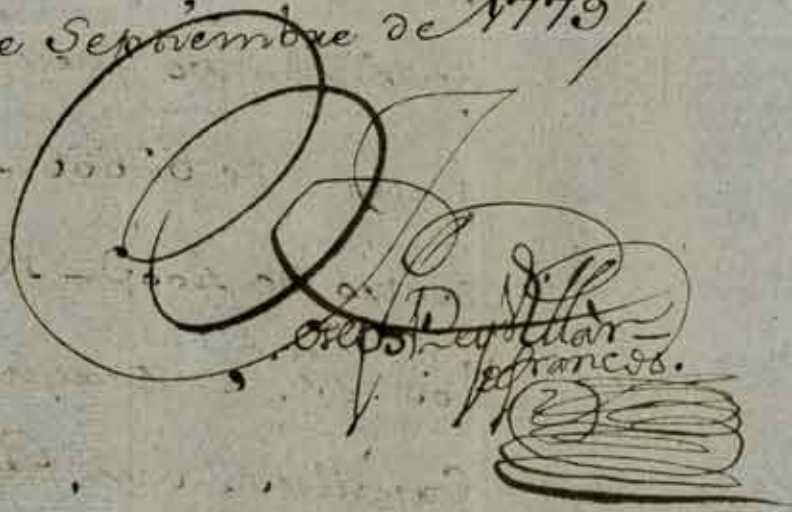 e Septiembre de 1779/
Joseph Rey Villar
de francos.